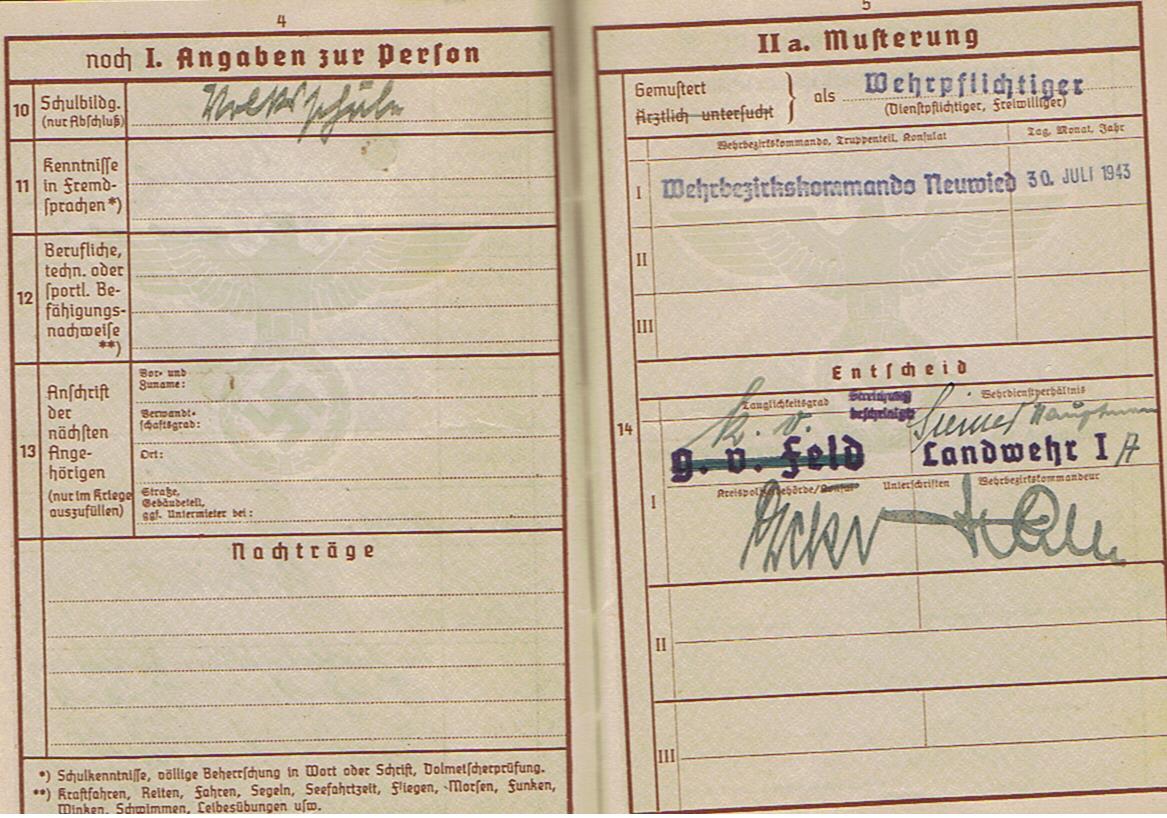 4
noch I. Angaben zur Person
10 Schulbildg. (nur Abschluß) Volksschule
11 Kenntnisse in Fremd-sprachen *)
12 Berufliche, techn. oder sportl. Be-fähigungs-nachweise **)
13 Anschrift der nächsten Ange-hörigen (nur im Kriege auszufüllen)
Vor- und Zuname:
Verwandt-schaftsgrad:
Ort:
Straße, Gebäudeteil, ggf. Untermieter bei:
Nachträge
*) Schulkenntnisse, völlige Beherrschung in Wort oder Schrift, Dolmetscherprüfung.
**) Kraftfahren, Reiten, Fahren, Segeln, Seefahrtzeit, Fliegen, Morsen, Funken,
Winken, Schwimmen, Leibesübungen usw.
5
II a. Musterung
Gemustert
Ärztlich untersucht } als Wehrpflichtiger
(Dienstpflichtiger, Freiwilliger)
Wehrbezirkskommando, Truppenteil, Konsulat Tag, Monat, Jahr
I Wehrbezirkskommando Neuwied 30. JULI 1943
II
III
Entscheid
14
Tauglichkeitsgrad Streichung bescheinigt Wehrdienstverhältnis
k. v. Hauptmann
g. v. Feld Landwehr I A
Kreispolizeibehörde/Konsul Unterschriften Wehrbezirkskommandeur
I
II
III